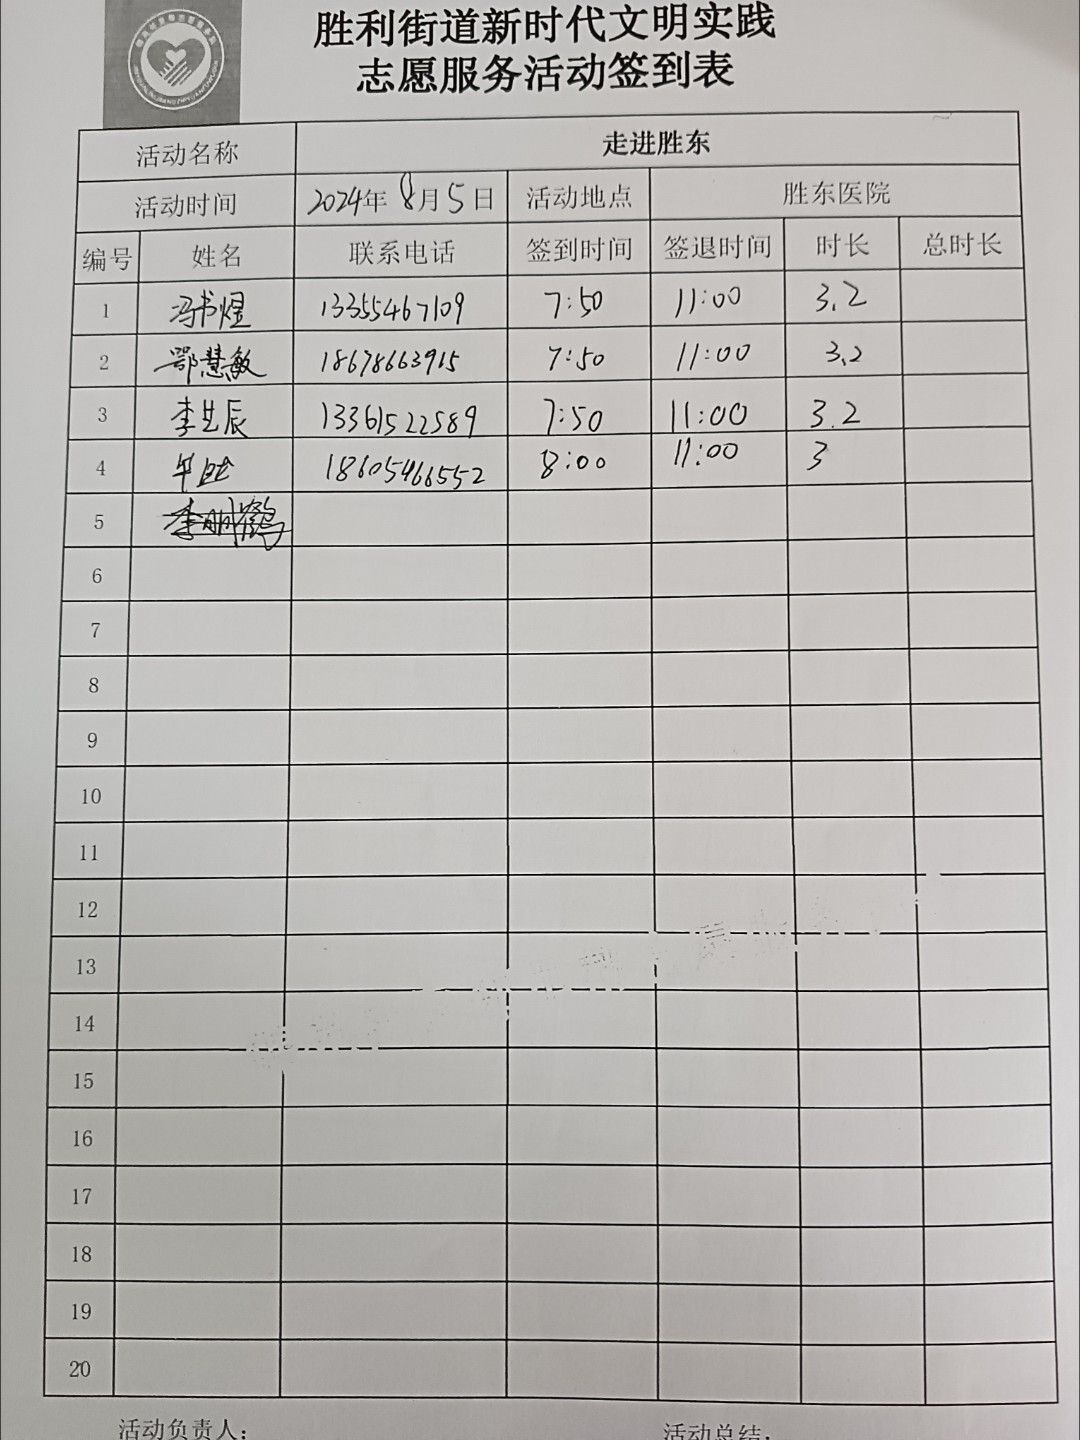 胜利街道新时代文明实践
志愿服务活动签到表
活动名称 走进胜东
活动时间 2024年8月5日 活动地点 胜东医院
编号 姓名 联系电话 签到时间 签退时间 时长 总时长
1 冯书煜 13355467109 7:50 11:00 3.2
2 鄂慧敏 18678663915 7:50 11:00 3.2
3 李艺辰 13361522589 7:50 11:00 3.2
4 18605466552 8:00 11:00 3
5 李明鹤
6
7
8
9
10
11
12
13
14
15
16
17
18
19
20
活动负责人: 活动总结: